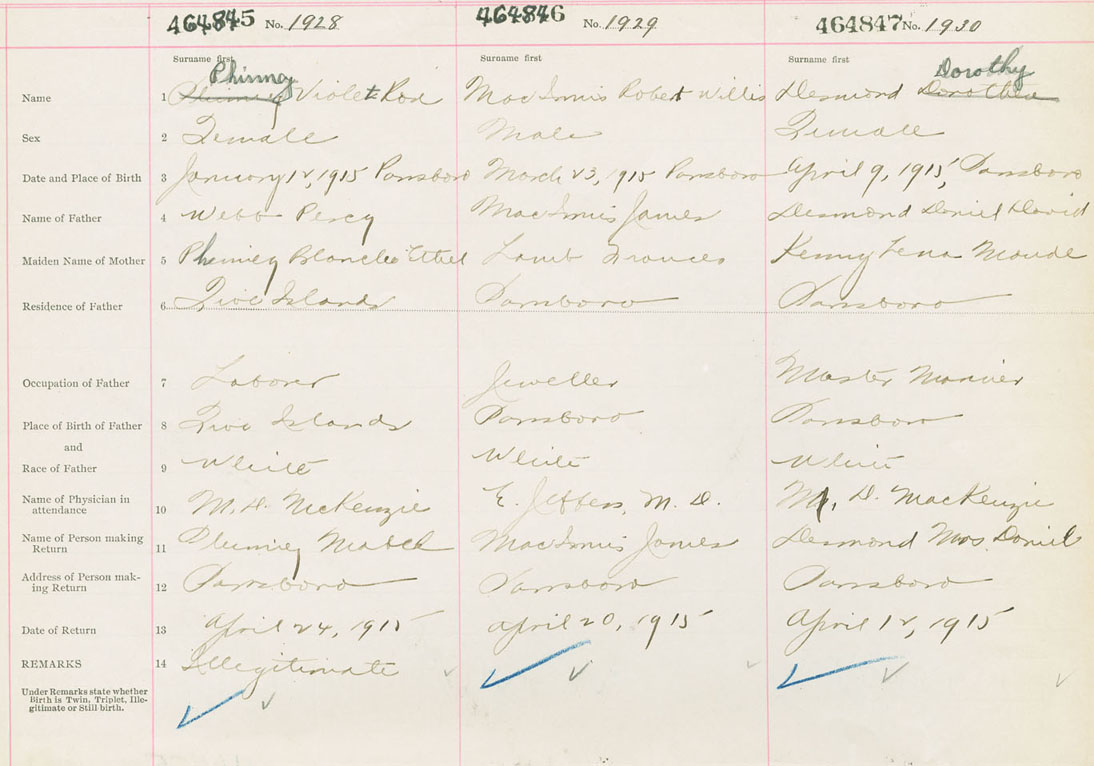 464845 No. 1928 464846 No. 1929 464847 No. 1930
Surname first Surname first Surname first
Phinney Dorothy
Name 1 Phinney Violet Rose MacInnis Robert Willis Desmond Dorothea
Sex 2 Female Male Female
Date and Place of Birth 3 January 12, 1915 Parrsboro March 23, 1915 Parrsboro April 9, 1915, Parrsboro
Name of Father 4 Webb Percy MacInnis James Desmond Daniel David
Maiden Name of Mother 5 Phinney Blanche Ethel Lamb Frances Kenny Lena Maude
Residence of Father 6 Five Islands Parrsboro Parrsboro
Occupation of Father 7 Laborer Jeweller Master Mariner
Place of Birth of Father 8 Five Islands Parrsboro Parrsboro
and
Race of Father 9 White White White
Name of Physician in
attendance 10 M. D. McKenzie E. Jeffers, M. D. M. D. MacKenzie
Name of Person making
Return 11 Phinney Mabel MacInnis James Desmond Mrs. Daniel
Address of Person mak-
ing Return 12 Parrsboro Parrsboro Parrsboro
Date of Return 13 April 24, 1915 April 20, 1915 April 12, 1915
REMARKS 14 Illegitimate
Under Remarks state whether
Birth is Twin, Triplet, Ille-
gitimate or Still birth.